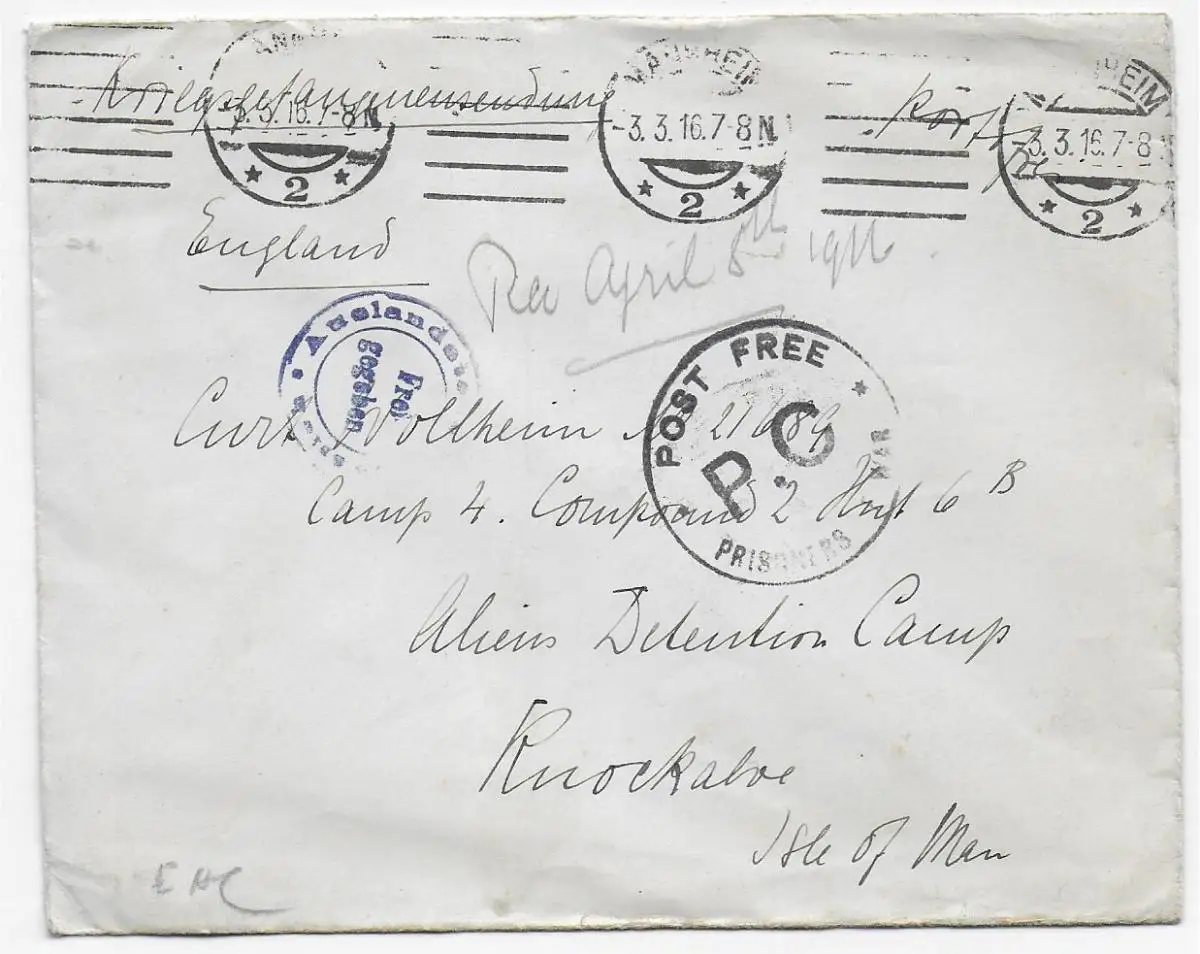 MANNHEIM
-3.3.16.7-8N
2
MANNHEIM
-3.3.16.7-8N
2
MANNHEIM
-3.3.16.7-8
2
Kriegsgefangenensendung
England
Rec April 8th 1916
Auslands
Frei
gegeben
POST FREE
P.C.
PRISONERS WAR
Curt Vollheim No 21689
Camp 4. Compound 2 Hut 6 B
Aliens Detention Camp
Knockaloe
Isle of Man